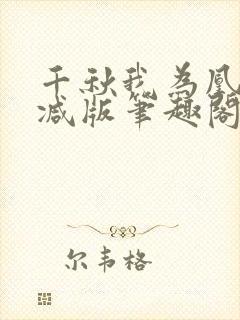 千秋我为凰
减版笔趣阁
尔韦格